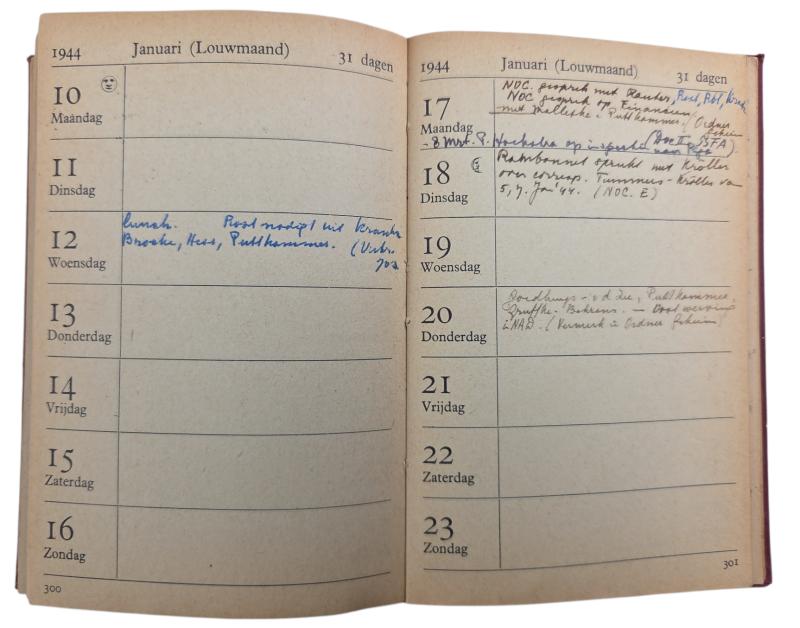 1944 Januari (Louwmaand) 31 dagen
10
Maandag
11
Dinsdag
12
Woensdag
lunch. Rost nodigt uit
Brocke, Hess, Puttkammer. (Vivbr.
13
Donderdag
14
Vrijdag
15
Zaterdag
16
Zondag
300
1944 Januari (Louwmaand) 31 dagen
17
Maandag
NOC. gesprek met Rauter, Rost,
NOC gesprek op Financien
met Puttkammer. (Ordner
geheim
- 8 Mrt. P. Hoekstra op inspectie (Doc II SSFA).
18
Dinsdag
Rambonnet spreekt met Kröller
over corresp. Tummers - Kröller van
5, 7, Jan '44. (NOC. E)
19
Woensdag
20
Donderdag
Goedhuys - v d Zee, Puttkammer,
Behrens. — Oost werving
NAD. (Vermerk in Ordner geheim)
21
Vrijdag
22
Zaterdag
23
Zondag
301